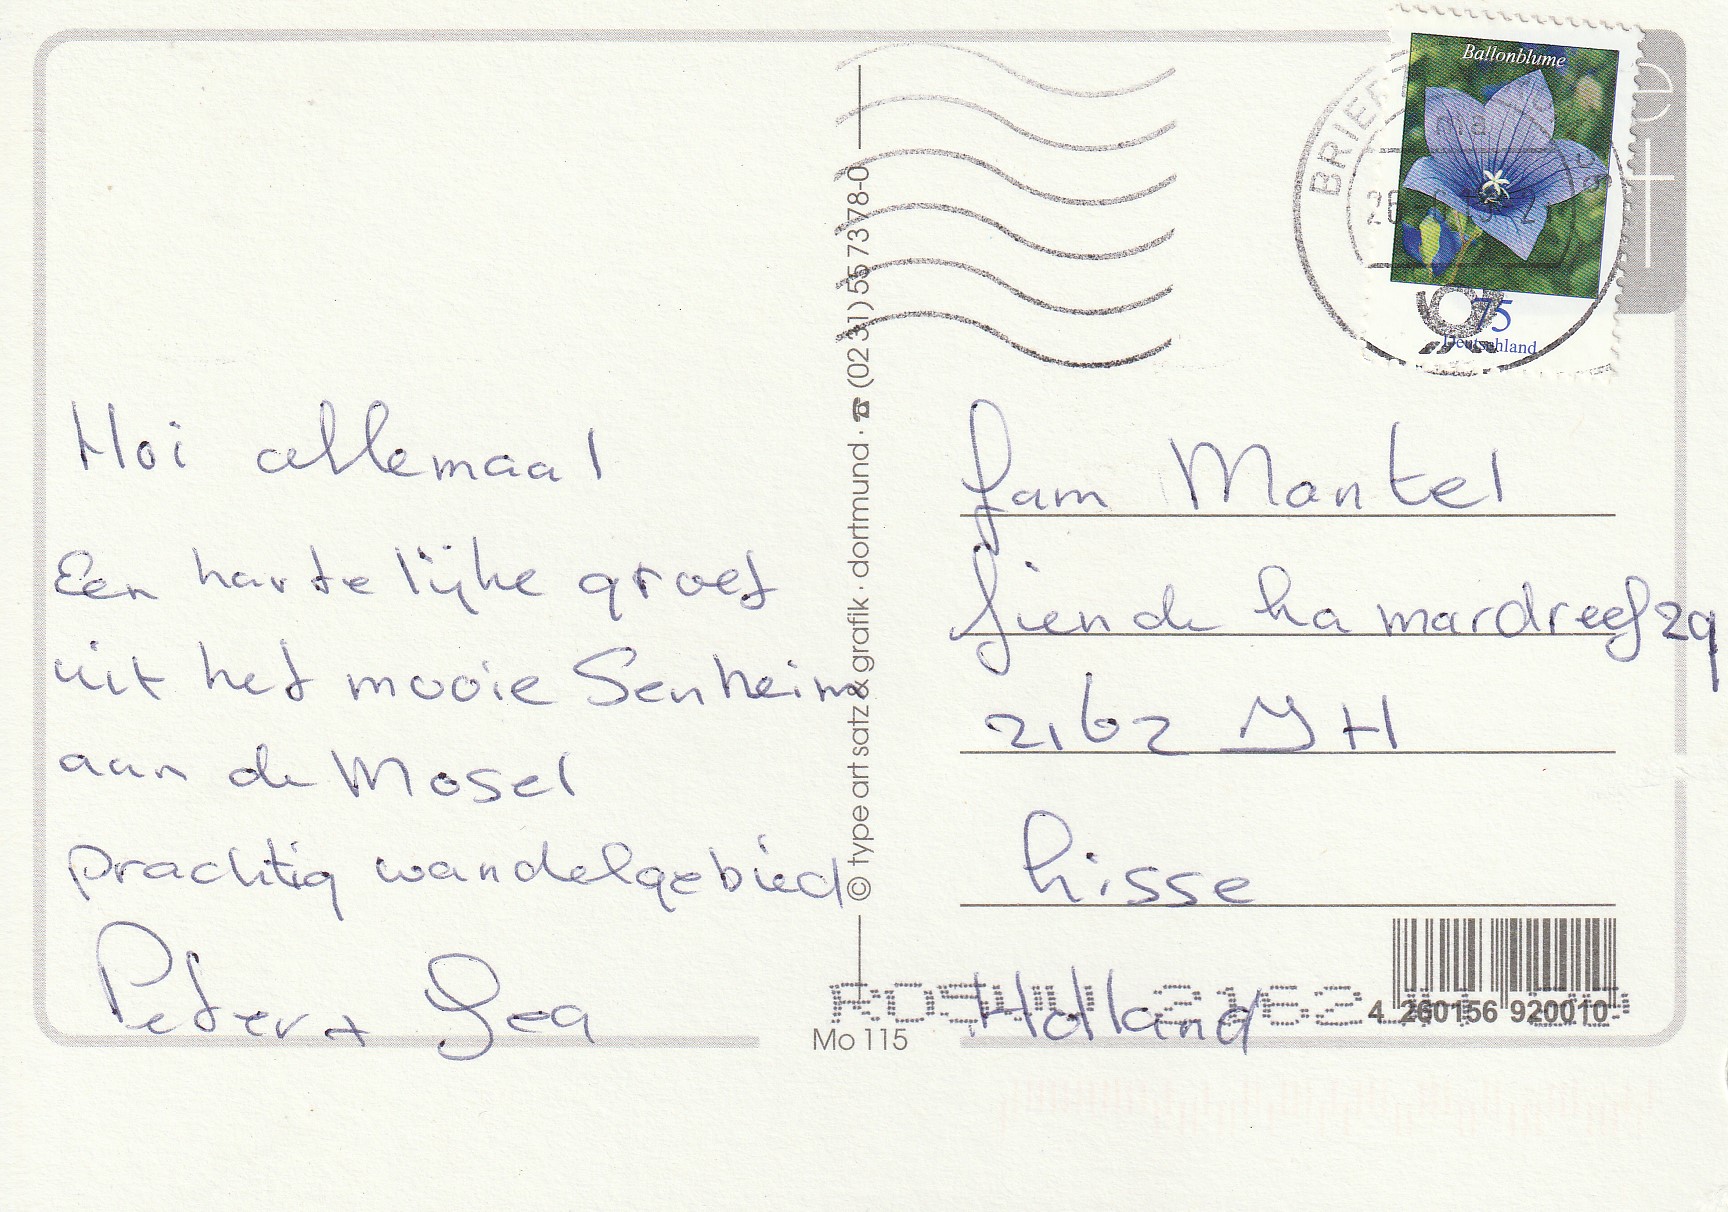 Hoi allemaal
Een hartelijke groet
uit het mooie Senheim
aan de Mosel
prachtig wandelgebied
Peter + Gea
© type art satz & grafik · dortmund · ☎ (0231) 557378-0
Mo 115
Ballonblume
75
Deutschland
BRIEF
Fam Mantel
Sien de ha mardreef 29
2162 JH
Lisse
Holland
4 260156 920010